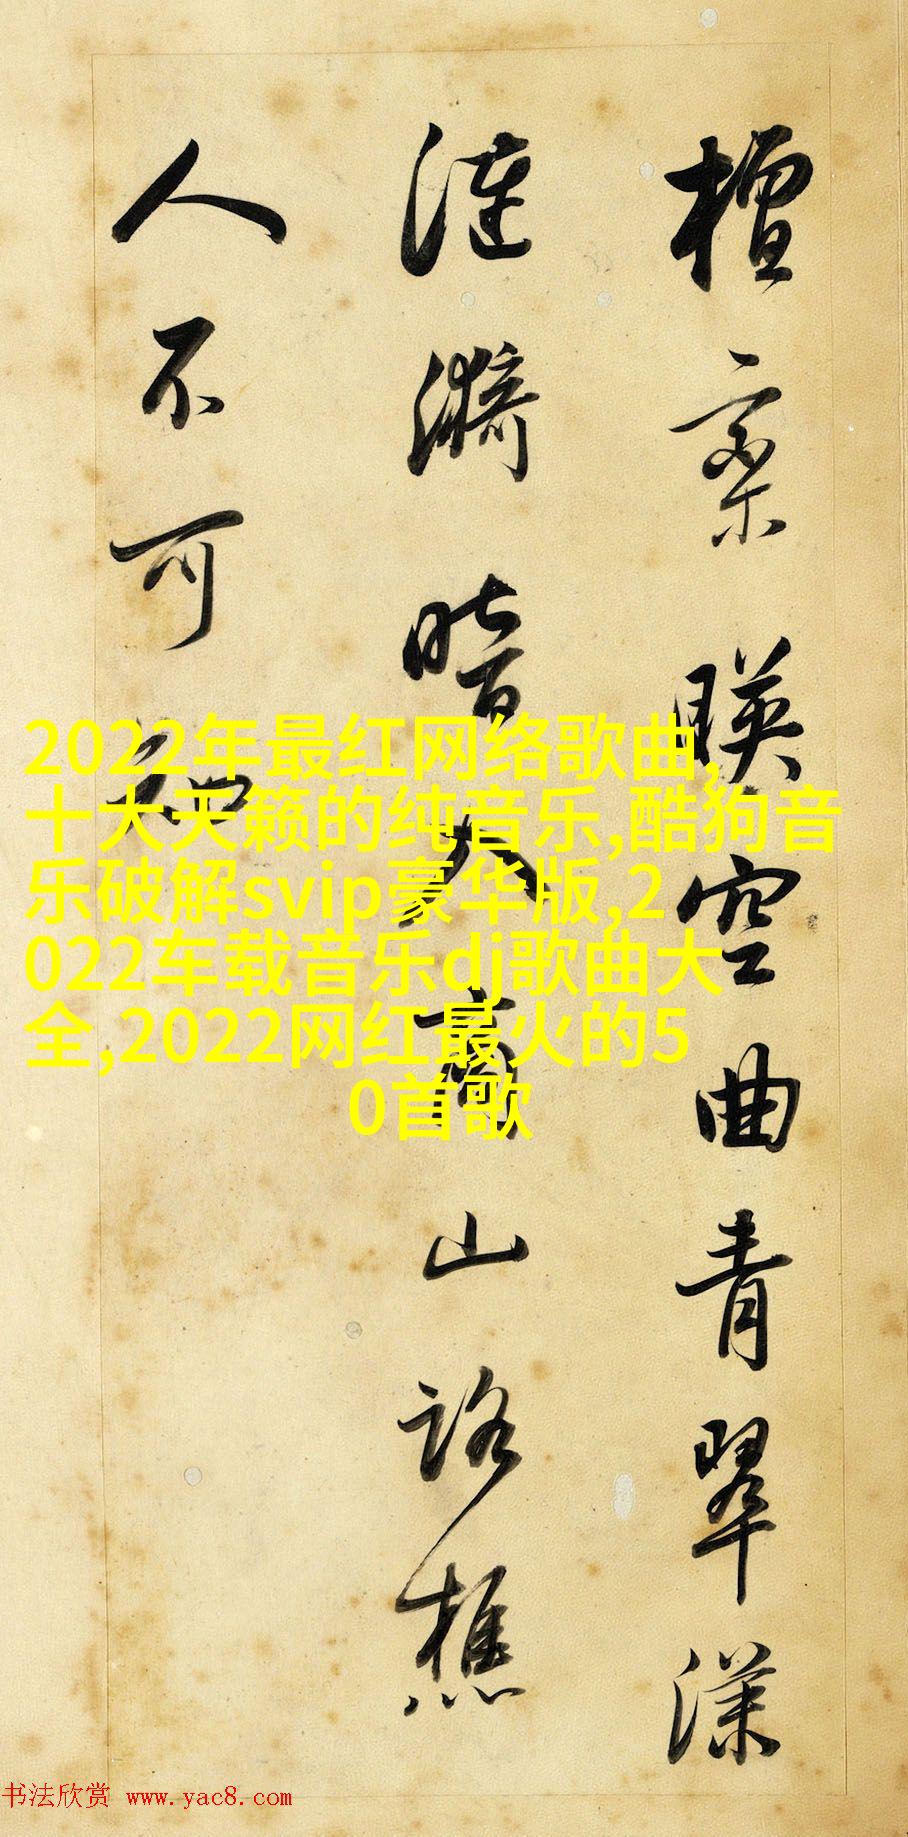 檀栾暎空曲青翠漾
漣漪暗入商山路樵
人不可知
2022年最红网络歌曲,
十大天籁的纯音乐,酷狗音
乐破解svip豪华版,2
022车载音乐dj歌曲大
全,2022网红最火的5
0首歌
书法欣赏 www.yac8.com